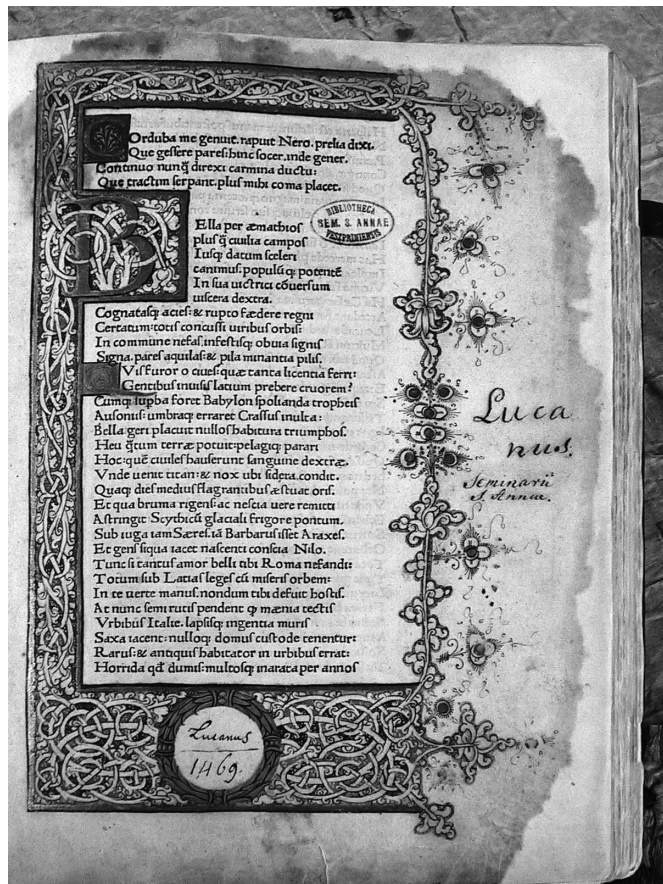 Corduba me genuit. rapuit Nero. prelia dixi.
Que gessere pares: hinc socer. inde gener.
Continuo nunq̃ direxi carmina ductu:
Que tractim serpant. plus mihi coma placet.
BElla per æmathios
plusq̃ ciuilia campos
Iusq; datum sceleri
canimus. populũq; potentẽ
In sua uictrici cõuersum
uiscera dextra.
Cognatasq; acies: & rupto fædere regni
Certatum: totis concussi uiribus orbis:
In commune nefas. infestisq; obuia signis
Signa. pares aquilas: & pila minantia pilis.
QVis furor o ciues: quæ tanta licentia ferri:
Gentibus inuisis latium prebere cruorem?
Cumq; supba foret Babylon spolianda tropheis
Ausonus: umbraq; erraret Crassus inulta:
Bella geri placuit nullos habitura triumphos.
Heu q̃tum terræ potuit: pelagiq; parari
Hoc: quẽ ciuiles hauserunt sanguine dextræ.
Vnde uenit titan: & nox ubi sidera condit.
Quaq; dies medius flagrantibus æstuat oris.
Et qua bruma rigens: ac nescia uere remitti
Astringit Scythicũ glaciali frigore pontum.
Sub iuga iam Særes. iã Barbarus isset Araxes.
Et gens siqua iacet nascenti conscia Nilo.
Tunc si tantus amor belli tibi Roma nefandi:
Totum sub Latias leges cũ miseris orbem:
In te uerte manus. nondum tibi defuit hostis.
At nunc semirutis pendent q̃ mænia tectis
Vrbibus Italie. lapsisq; ingentia muris
Saxa iacent: nulloq; domus custode tenentur:
Rarus: & antiquis habitator in urbibus errat:
Horrida qđ dumis: multosq; inarata per annos
BIBLIOTHECA
SEM. S. ANNAE
VESZPRIMIENSIS
Luca
nus.
Seminarii
S. Annae.
Lucanus
1469.